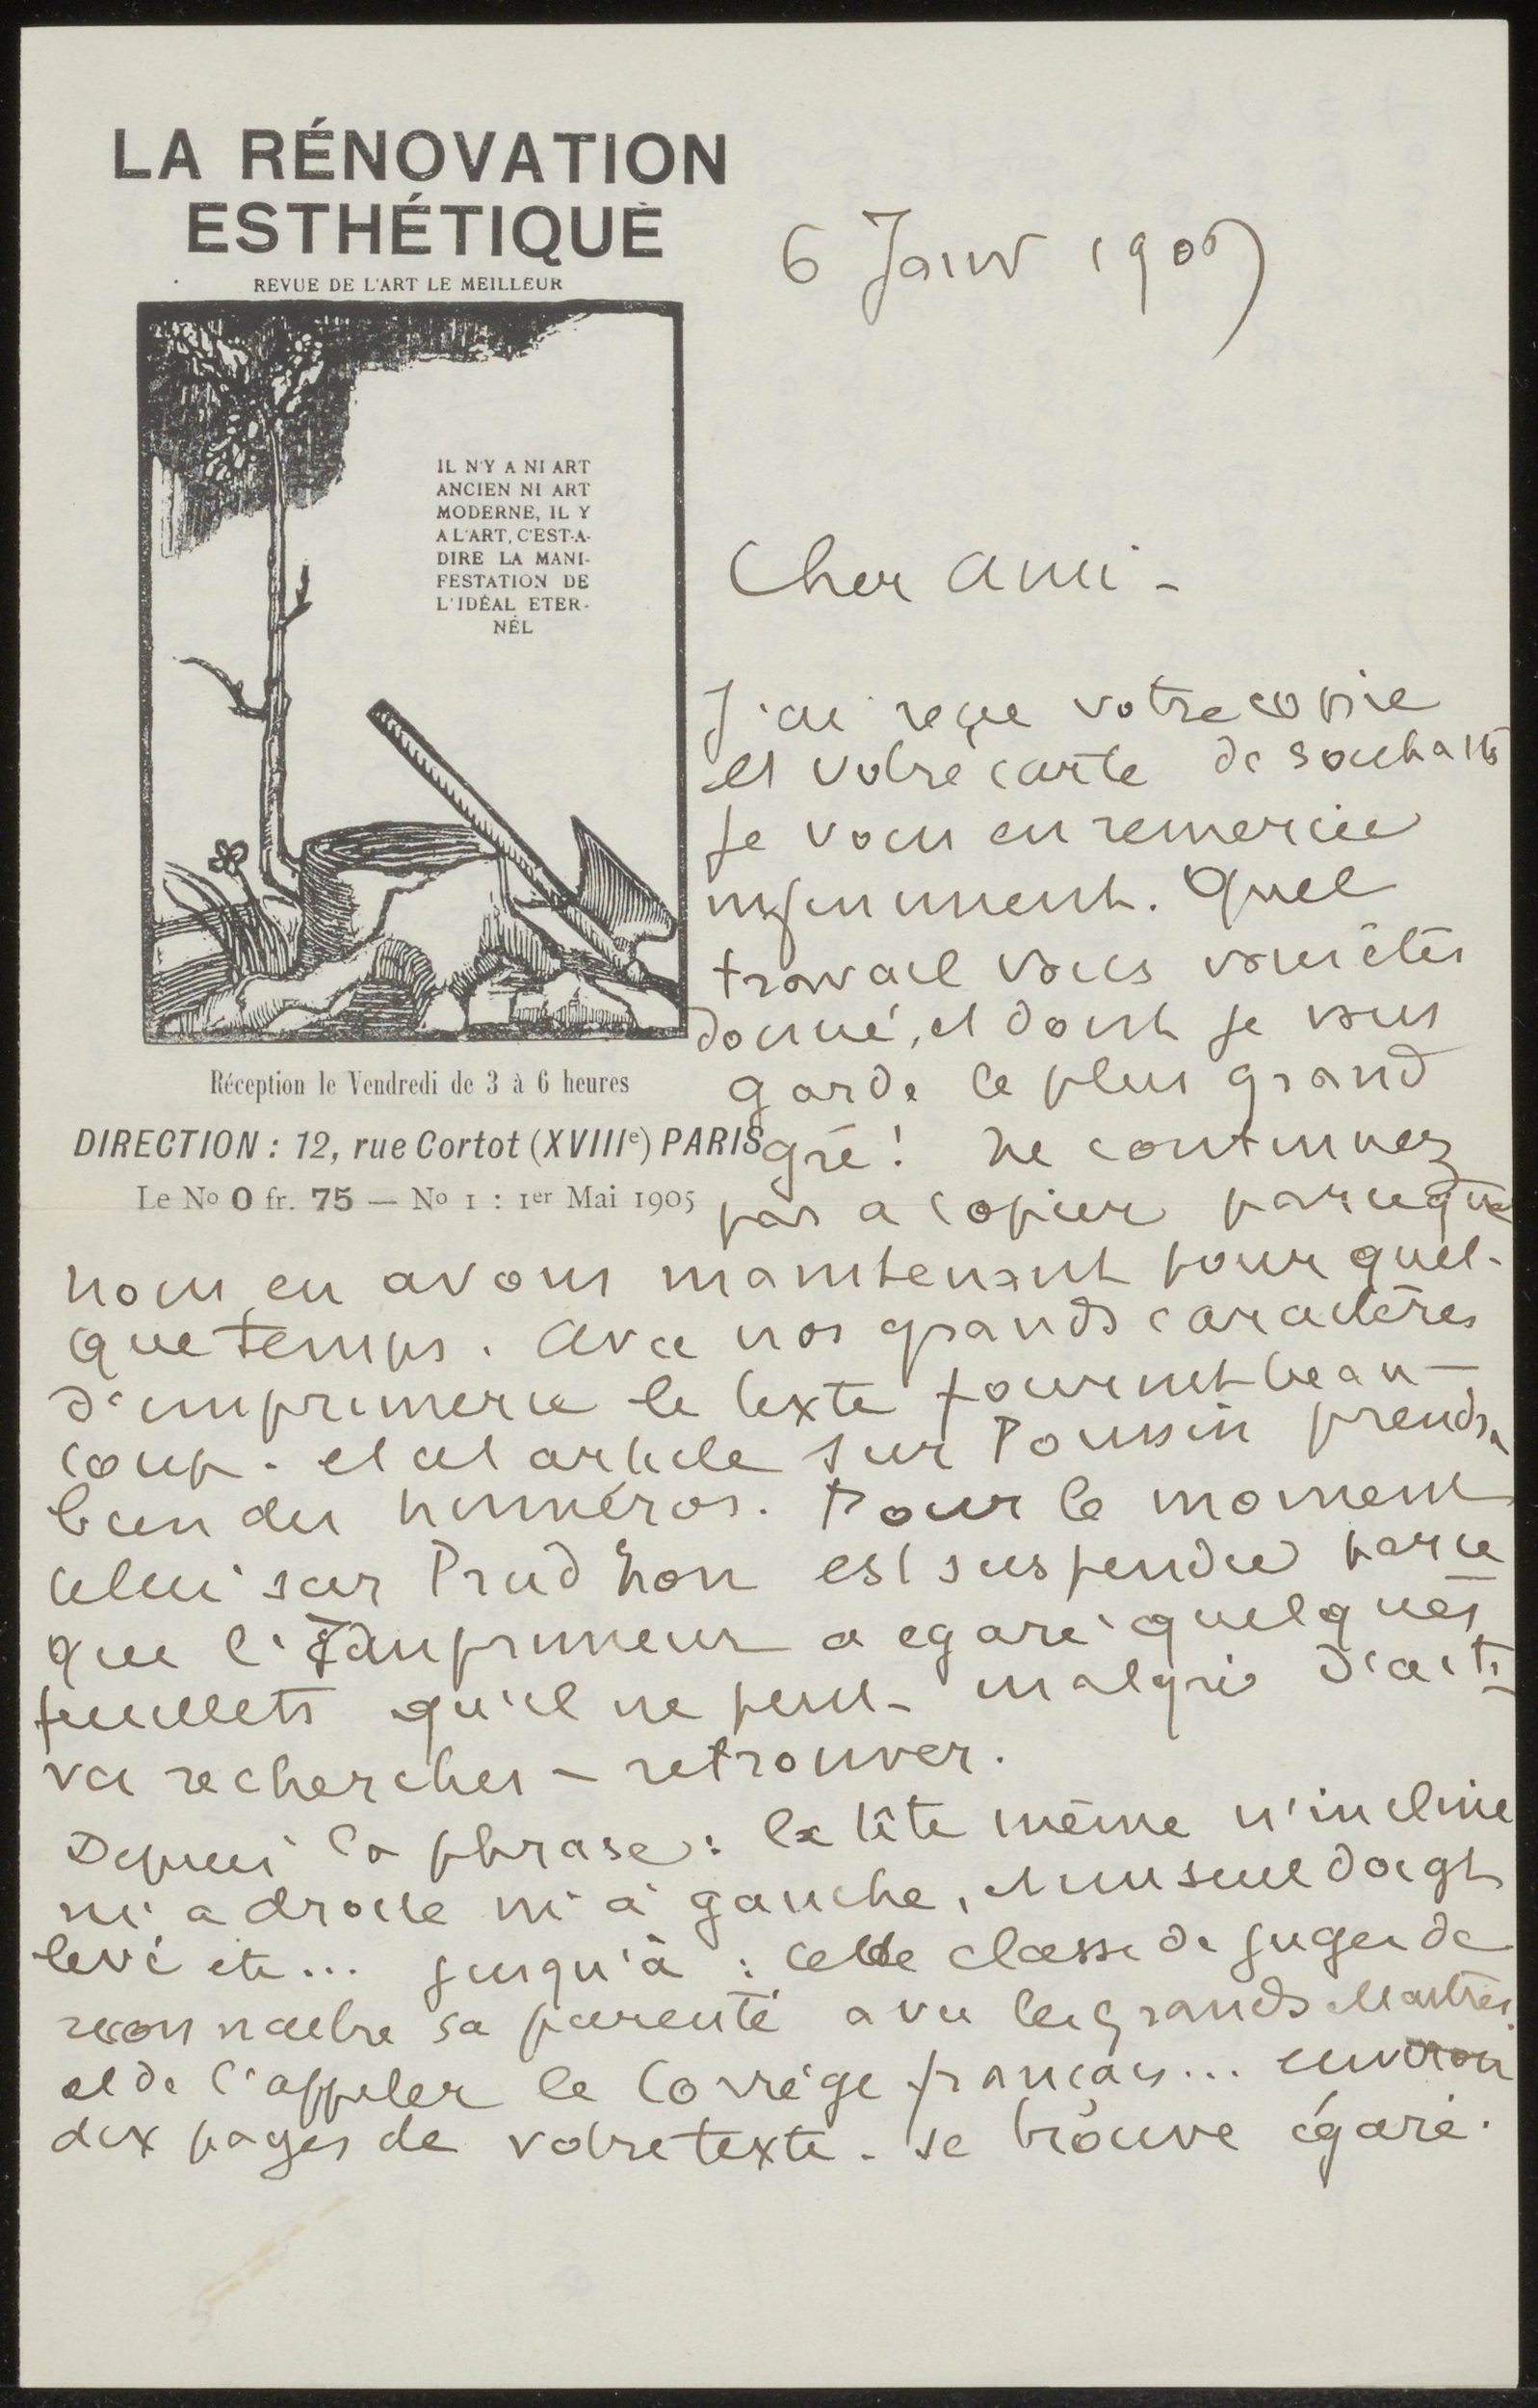 LA RÉNOVATION
ESTHÉTIQUE
REVUE DE L'ART LE MEILLEUR
IL N'Y A NI ART
ANCIEN NI ART
MODERNE, IL Y
A L'ART, C'EST-A-
DIRE LA MANI-
FESTATION DE
L'IDÉAL ETER-
NEL
Réception le Vendredi de 3 à 6 heures
DIRECTION : 12, rue Cortot (XVIIIe) PARIS
Le No 0 fr. 75 — No 1 : 1er Mai 1905
6 Janv
Cher ami -
J'ai reçu votre copie
et votre carte de souhaits
Je vous en remercie
infiniment. Quel
travail vous vous êtes
donné, et dont je vous
garde le plus grand
gré ! Ne continuez
pas a copier parceque
nous en avons maintenant pour quel-
que temps. Avec nos grands caractères
d'imprimerie le texte fournit beau-
coup. et cet article sur Poussin prendra
bien des numéros. Pour le moment
celui sur Prud'hon est suspendu parce
que l'Imprimeur a egaré quelques
feuillets qu'il ne peut - malgré d'acti-
ves recherches - retrouver.
Depuis la phrase : la tête même n'incline
ni a droite ni à gauche, un seul doigt
levé etc... jusqu'à : cette classe de juges de
reconnaître sa parenté avec les grands Maitres
et de l'appeler le Corrège français... environ
dix pages de votre texte - se trouve égaré.